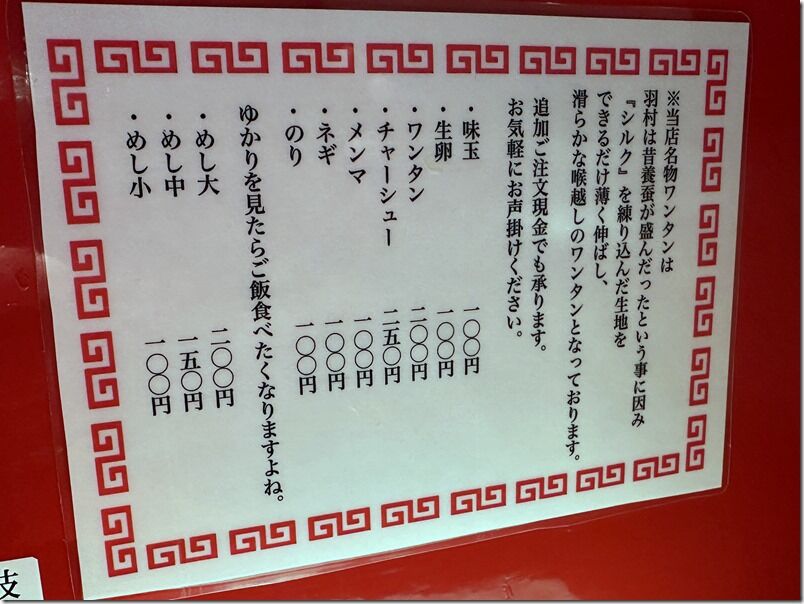 ※当店名物ワンタンは
羽村は昔養蚕が盛んだったという事に因み
『シルク』を練り込んだ生地を
できるだけ薄く伸ばし、
滑らかな喉越しのワンタンとなっております。
追加ご注文現金でも承ります。
お気軽にお声掛けください。
・味玉 一〇〇円
・生卵 一〇〇円
・ワンタン 二〇〇円
・チャーシュー 二五〇円
・メンマ 一〇〇円
・ネギ 一〇〇円
・のり 一〇〇円
ゆかりを見たらご飯食べたくなりますよね。
・めし大 二〇〇円
・めし中 一五〇円
・めし小 一〇〇円